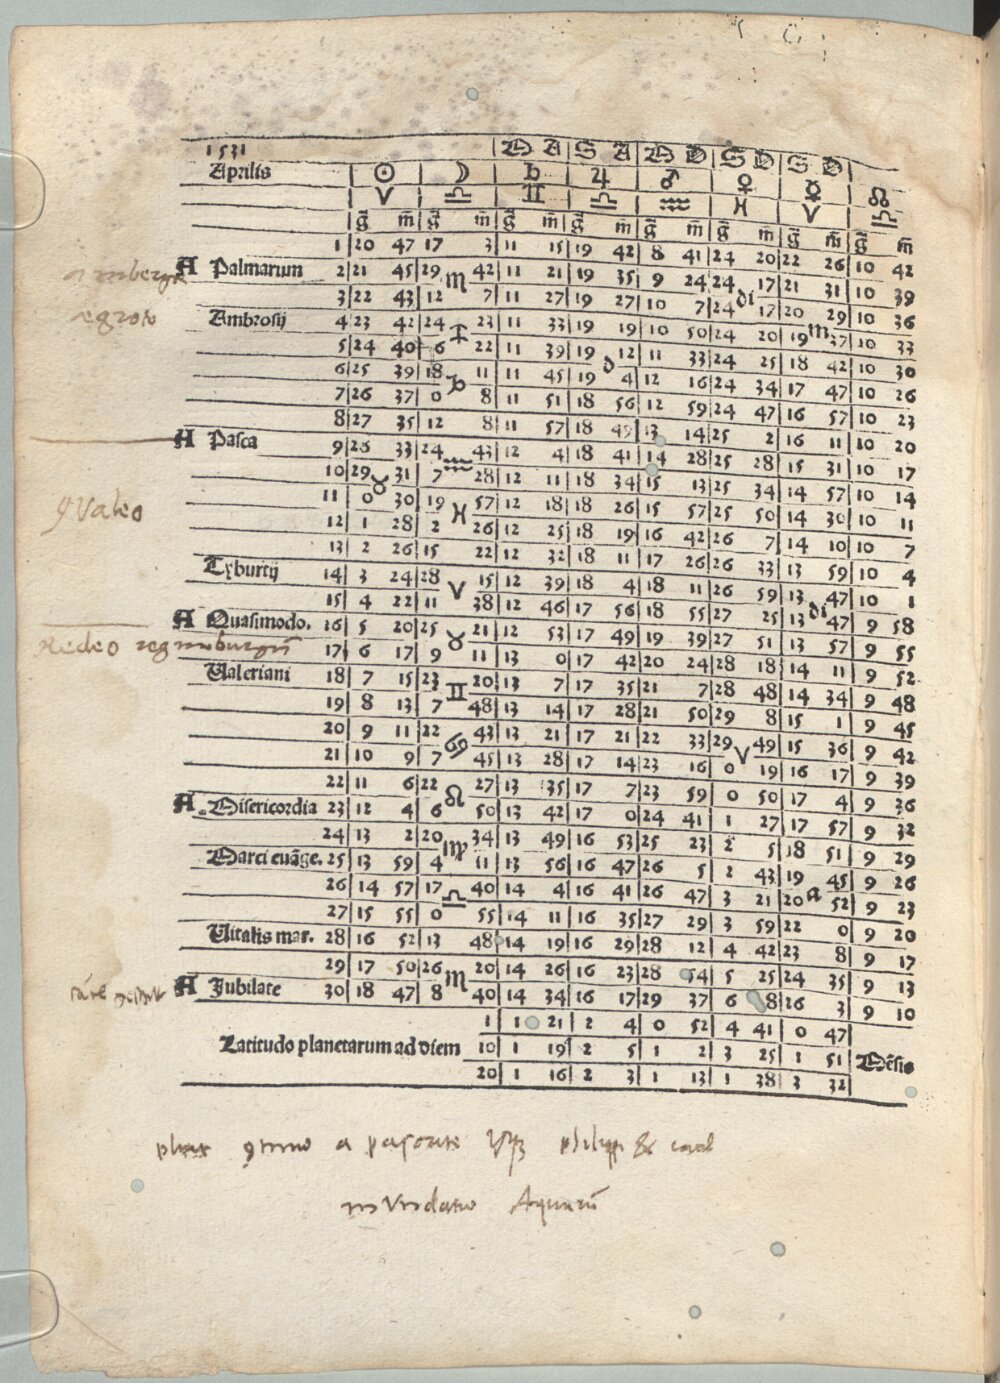 1531 M A S A M D S D S D
Aprilis ☉ ☽ ♄ ♃ ♂ ♀ ☿ ☊
♈ ♎ ♊ ♎ ♒ ♓ ♈ ♎
g̃ m̃ g̃ m̃ g̃ m̃ g̃ m̃ g̃ m̃ g̃ m̃ g̃ m̃ g̃ m̃
1 20 47 17 3 11 15 19 42 8 41 24 20 22 26 10 42
A Palmarum 2 21 45 29 ♏ 42 11 21 19 35 9 24 24 17 21 31 10 39
3 22 43 12 7 11 27 19 27 10 7 24 di 17 20 29 10 36
egroto
Ambrosij 4 23 42 24 ♐ 23 11 33 19 19 10 50 24 20 19 m 37 10 33
5 24 40 6 22 11 39 19 12 11 33 24 25 18 42 10 30
6 25 39 18 ♑ 11 11 45 19 4 12 16 24 34 17 47 10 26
7 26 37 0 8 11 51 18 56 12 59 24 47 16 57 10 23
8 27 35 12 8 11 57 18 49 13 14 25 2 16 11 10 20
A Pasca 9 28 33 24 ♒ 43 12 4 18 41 14 28 25 28 15 31 10 17
10 29 ♉ 31 7 28 12 11 18 34 15 13 25 34 14 57 10 14
11 0 30 19 ♓ 57 12 18 18 26 15 57 25 50 14 30 10 11
12 1 28 2 26 12 25 18 19 16 42 26 7 14 10 10 7
13 2 26 15 22 12 32 18 11 17 26 26 33 13 59 10 4
Tyburtij 14 3 24 28 ♈ 15 12 39 18 4 18 11 26 59 13 47 10 1
15 4 22 11 38 12 46 17 56 18 55 27 25 13 di 47 9 58
A Quasimodo. 16 5 20 25 ♉ 21 12 53 17 49 19 39 27 51 13 57 9 55
Redeo
17 6 17 9 11 13 0 17 42 20 24 28 18 14 11 9 52
Valeriani 18 7 15 23 ♊ 20 13 7 17 35 21 7 28 48 14 34 9 48
19 8 13 7 48 13 14 17 28 21 50 29 8 15 1 9 45
20 9 11 22 ♋ 43 13 21 17 21 22 33 29 ♈ 49 15 36 9 42
21 10 9 7 45 13 28 17 14 23 16 0 19 16 17 9 39
22 11 6 22 ♌ 27 13 35 17 7 23 59 0 50 17 4 9 36
A Misericordia 23 12 4 6 50 13 42 17 0 24 41 1 27 17 57 9 32
24 13 2 20 ♍ 34 13 49 16 53 25 23 2 5 18 51 9 29
Marci euãge. 25 13 59 4 11 13 56 16 47 26 5 2 43 19 45 9 26
26 14 57 17 ♎ 40 14 4 16 41 26 47 3 21 20 a 52 9 23
27 15 55 0 55 14 11 16 35 27 29 3 59 22 0 9 20
Vitalis mar. 28 16 52 13 48 14 19 16 29 28 12 4 42 23 8 9 17
29 17 50 26 ♏ 20 14 26 16 23 28 54 5 25 24 35 9 13
A Jubilate 30 18 47 8 40 14 34 16 17 29 37 6 8 26 3 9 10
1 1 21 2 4 0 52 4 41 0 47
Latitudo planetarum ad diem 10 1 19 2 5 1 2 3 25 1 51 Mẽsis
20 1 16 2 3 1 13 1 38 3 32
a philippi &
Aquarũ